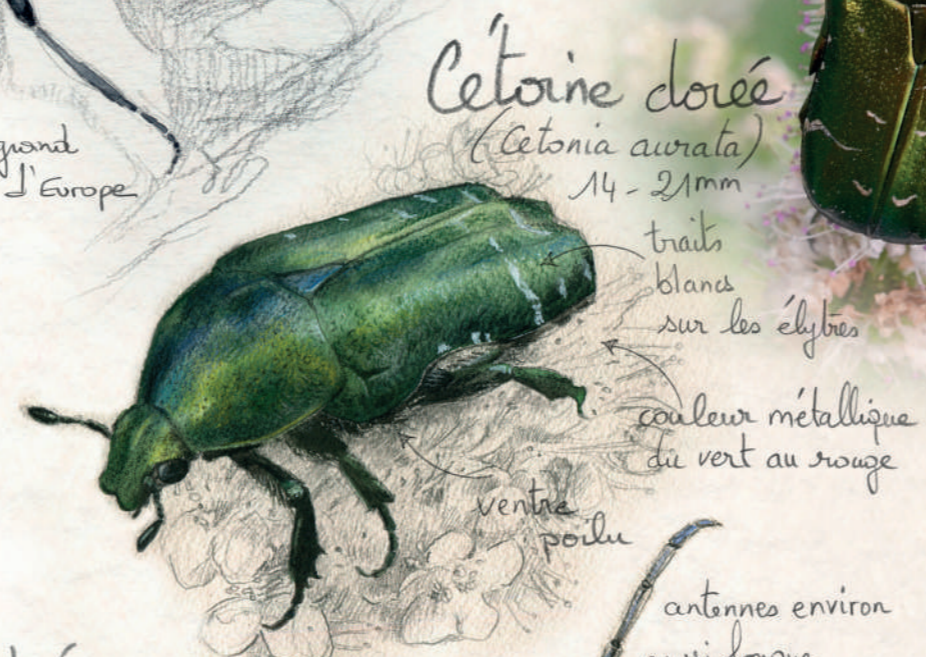 grand
d'Europe
Cétoine dorée
(Cetonia aurata)
14-21mm
traits
blancs
sur les élytres
couleur métallique
du vert au rouge
ventre
poilu
antennes environ